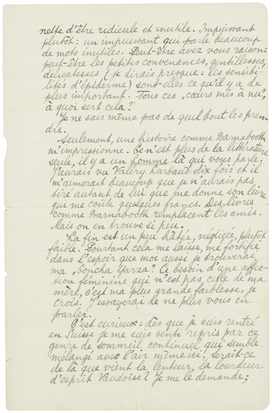 nette d'être ridicule et inutile. Impuissant
plutôt: un impuissant qui parle beaucoup
de mots inutiles. Peut-être avez vous raison:
peut-être les petites convenances, gentillesses,
délicatesses (je dirais presque: les sensibi-
lités d'épiderme) sont-elles ce qu'il y a de
plus important. Tous ces „cœurs mis à nu",
à quoi sert cela?
Je ne sais même pas de quel bout les pren-
dre.
Seulement, une histoire comme Barnabooth
m'impressionne. Ce n'est plus de la littérature
seule, il y a un homme là qui vous parle.
J'aurais vu Valery Larbaud dix fois et il
m'aimerait beaucoup que je n'aurais pas
tiré autant de lui que me donne son livre
qui me coûte quelques francs. Des livres
comme Barnabooth remplacent les amis.
Mais on en trouve si peu.
La fin est un peu hâtée, négligée, plutôt
faible. Pourtant cela me laisse, me fortifie
dans l'espoir que moi aussi je trouverai
ma „Concha Yarza". Ce besoin d'une affec-
tion féminine qui n'est pas celle de ma
mère, c'est ma plus grande faiblesse, je
crois. J'essayerai de ne plus vous en
parler.
C'est curieux: dès que je suis rentré
en Suisse je me suis senti repris par ce
genre de sommeil continuel qui semble
mélangé avec l'air même ici. Serait-ce
de là que vient la lenteur, la lourdeur
d'esprit Vaudoise? Je me le demande;